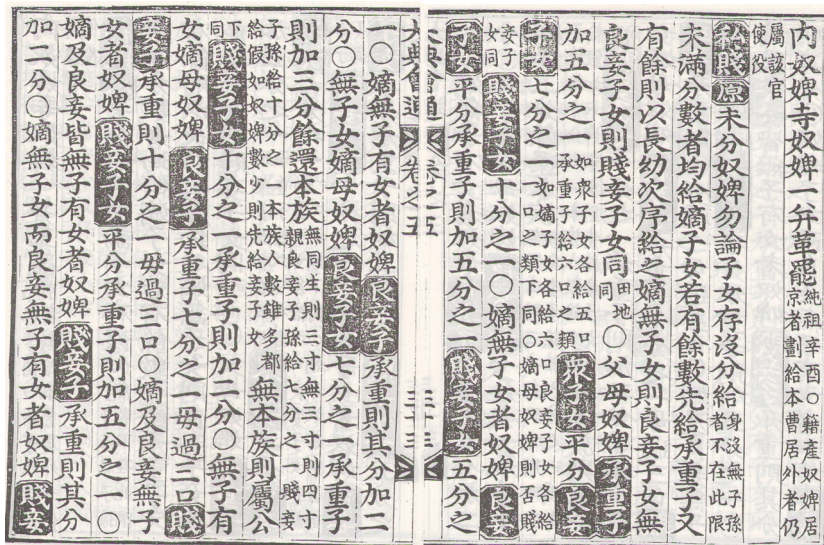 內奴婢寺奴婢一幷革罷純祖辛酉○籍產奴婢居京者劃給本曹居外者仍
屬該官使役
私賤 原 未分奴婢勿論子女存沒分給身沒無子孫者不在此限
未滿分數者均給嫡子女若有餘數先給承重子又
有餘則以長幼次序給之嫡無子女則良妾子女無
良妾子女則賤妾子女同田地同○父母奴婢承重子
加五分之一如衆子女各給五口承重子給六口之類衆子女平分良妾
子女七分之一如嫡子女各給六口良妾子女各給一口之類下同○嫡母奴婢則否賤
妾子女同賤妾子女十分之一○嫡無子女者奴婢良妾
子女平分承重子則加五分之一賤妾子女五分之
大典會通 卷之五 三十三
一○嫡無子有女者奴婢良妾子承重則其分加二
分○無子女嫡母奴婢良妾子女七分之一承重子
則加三分餘還本族無同生則三寸無三寸則四寸親良妾子孫給七分之一賤妾
子孫給十分之一本族人數雖多都給假如奴婢數少則先給妾子女無本族則屬公
下同賤妾子女十分之一承重子則加二分○無子有
女嫡母奴婢良妾子承重子七分之一毋過三口賤
妾子承重則十分之一毋過三口○嫡及良妾無子
女者奴婢賤妾子女平分承重子則加五分之一○
嫡及良妾皆無子有女者奴婢賤妾子承重則其分
加二分○嫡無子女而良妾無子有女者奴婢賤妾